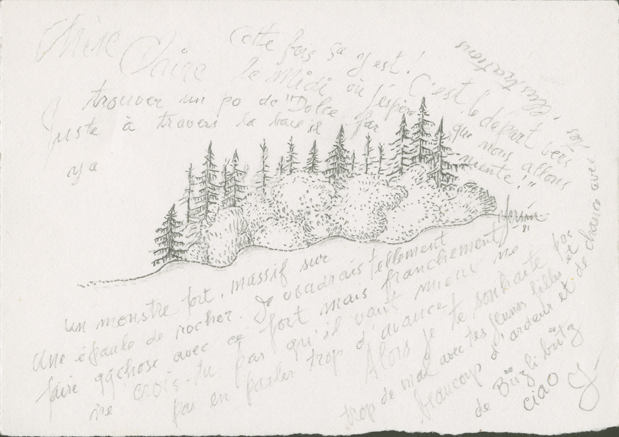 Claire
Cette fois ça y est! C'est le départ vers
le Midi où j'espère que nous allons
trouver un po de "Dolce far niente!"
Juste à travers la baie il
y a
81
un monstre fort, massif sur
Une épaule de rocher. Je voudrais tellement
faire qqchose avec ce fort mais franchement
ne crois-tu pas qu'il vaut mieux ne
pas en parler trop d'avance!
Alors je te souhaite pas
trop de mal avec tes jeunes filles et
beaucoup d'ardeur et de chance avec
de
ciao